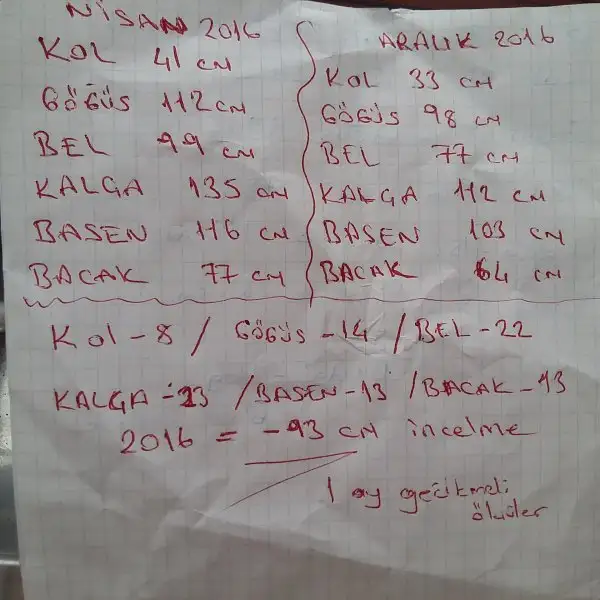 NİSAN 2016
KOL 41 cm
GÖĞÜS 112 cm
BEL 99 cm
KALGA 135 cm
BASEN 116 cm
BACAK 77 cm
ARALIK 2016
KOL 33 cm
GÖĞÜS 98 cm
BEL 77 cm
KALGA 112 cm
BASEN 103 cm
BACAK 64 cm
KOL - 8 / GÖĞÜS - 14 / BEL - 22
KALGA - 23 / BASEN - 13 / BACAK - 13
2016 = - 93 cm incelme
1 ay gecikmeli
ölçüler